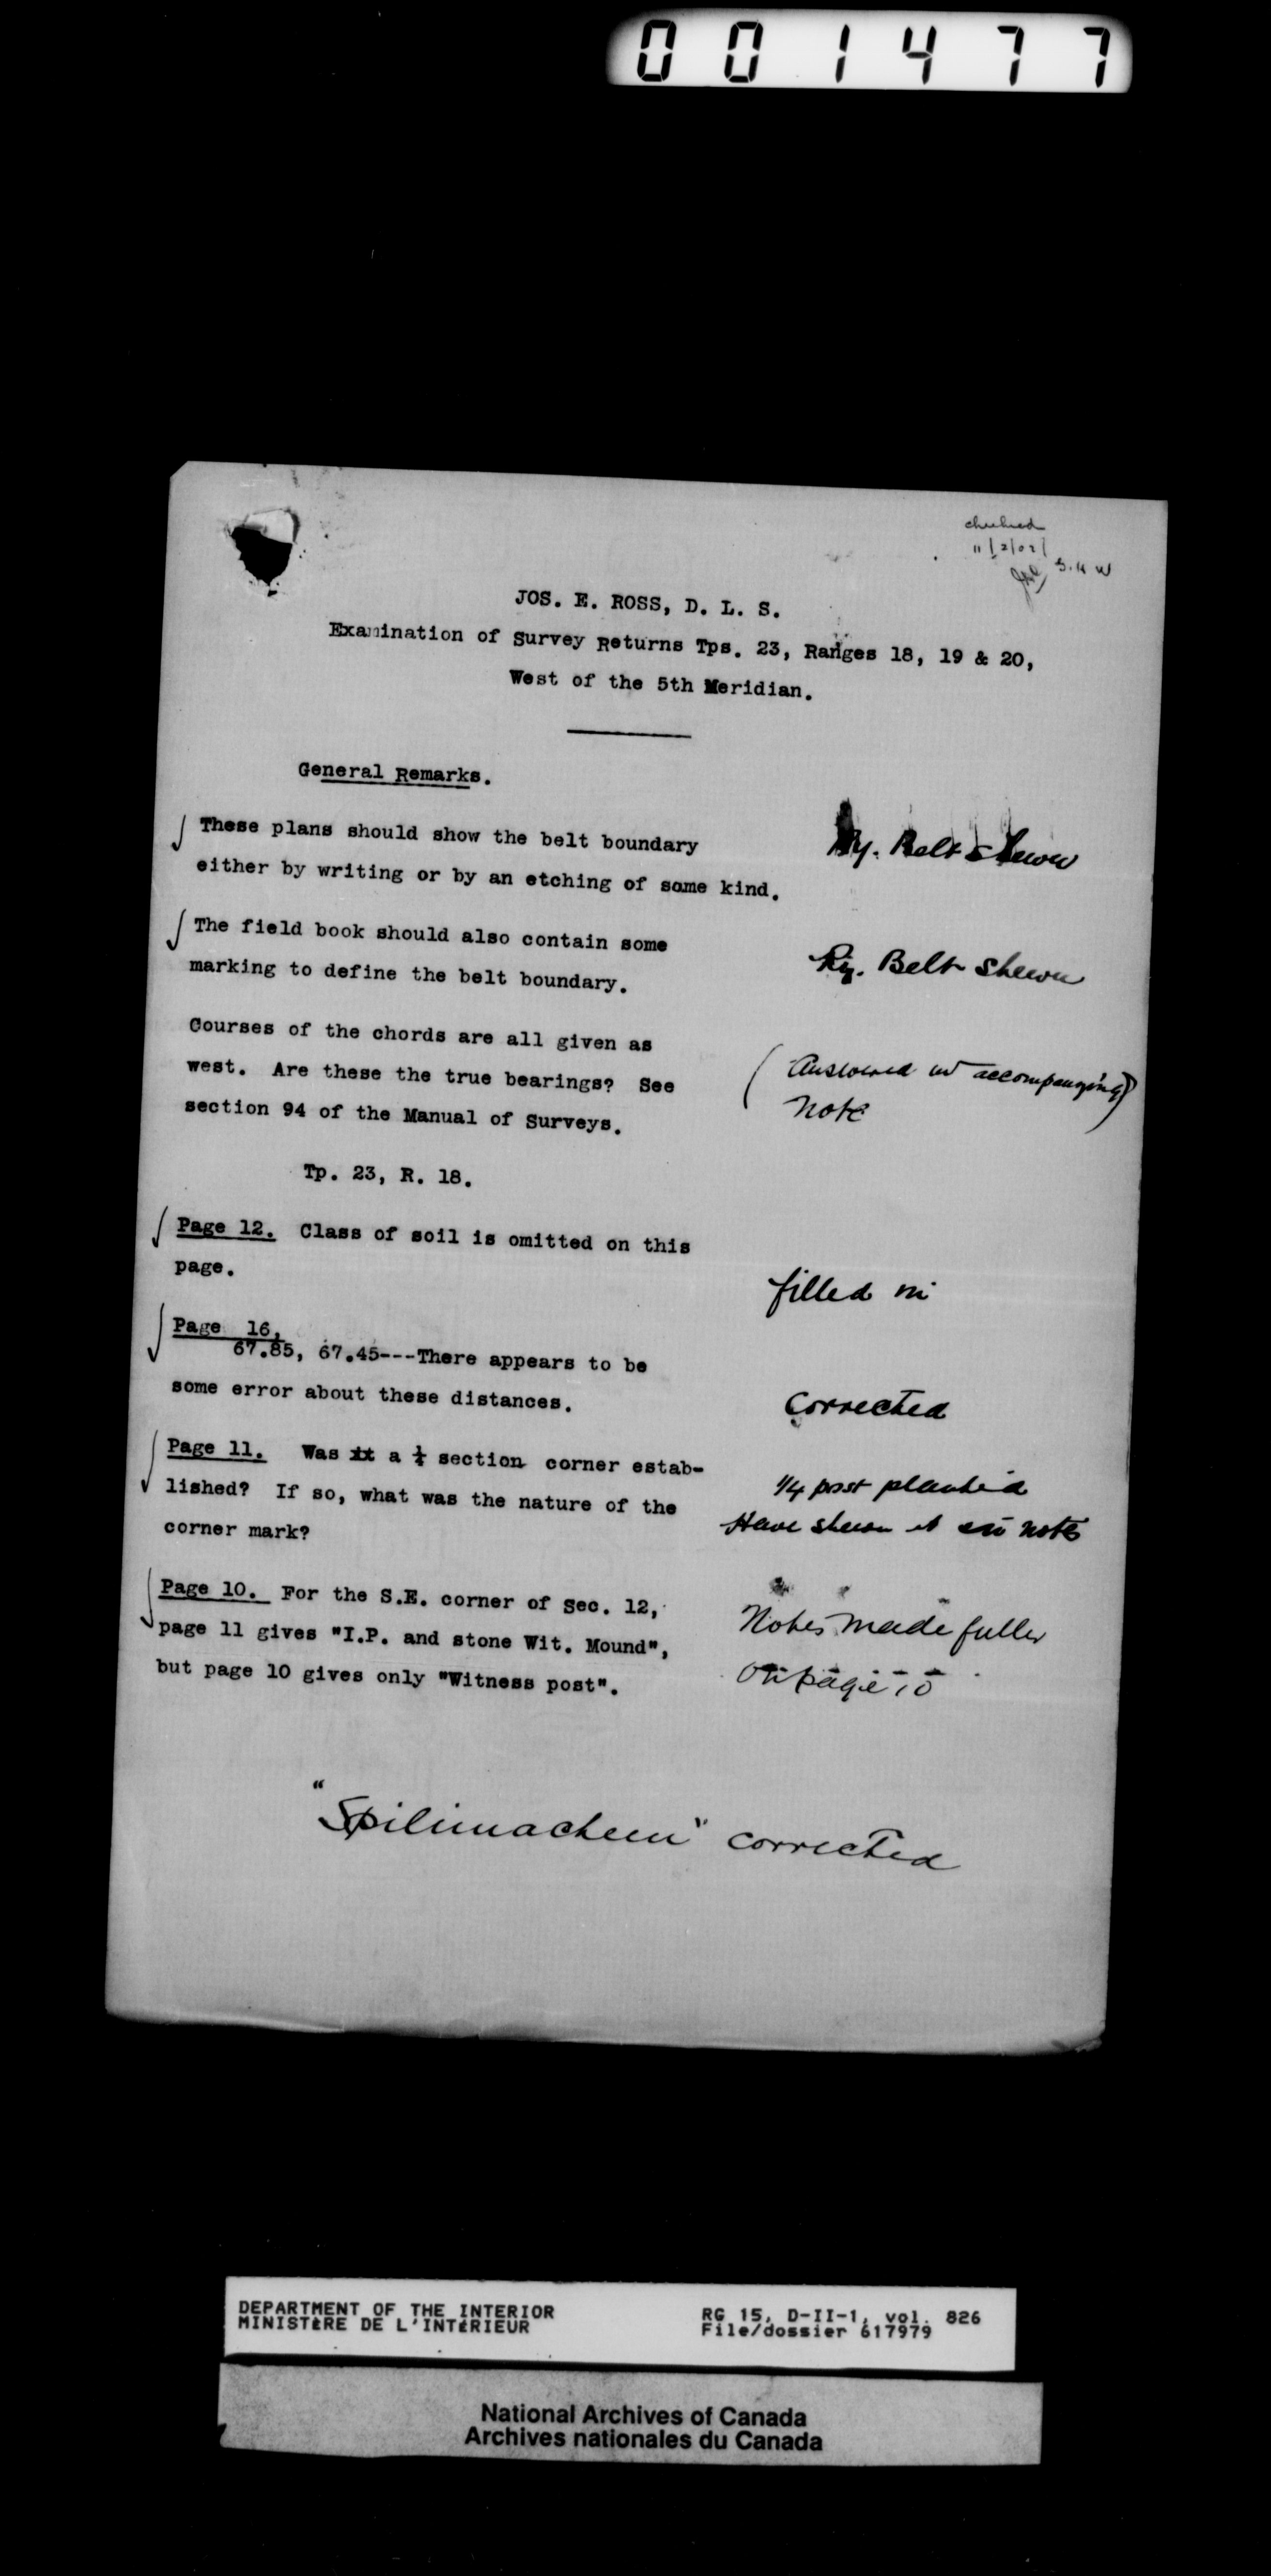 001477
checked
11/2/02
JOS. E. ROSS, D. L. S.
Examination of Survey Returns Tps. 23, Ranges 18, 19 & 20,
West of the 5th Meridian.
General Remarks.
These plans should show the belt boundary
either by writing or by an etching of some kind.
Ry. Belt shewn
The field book should also contain some
marking to define the belt boundary.
Ry. Belt shewn
Courses of the chords are all given as
west. Are these the true bearings? See
section 94 of the Manual of Surveys.
(Answered in accompanying
Note)
Tp. 23, R. 18.
Page 12. Class of soil is omitted on this
page.
filled in
Page 16,
67.85, 67.45---There appears to be
some error about these distances.
Corrected
Page 11. Was it a ¼ section corner estab-
lished? If so, what was the nature of the
corner mark?
1/4 post planted
Have shewn it in notes
Page 10. For the S.E. corner of Sec. 12,
page 11 gives "I.P. and stone Wit. Mound",
but page 10 gives only "Witness post".
Notes made fuller
on page 10
"Spilimacheen" corrected
DEPARTMENT OF THE INTERIOR
MINISTÈRE DE L'INTÉRIEUR
RG 15, D-II-1, vol. 826
File/dossier 617979
National Archives of Canada
Archives nationales du Canada